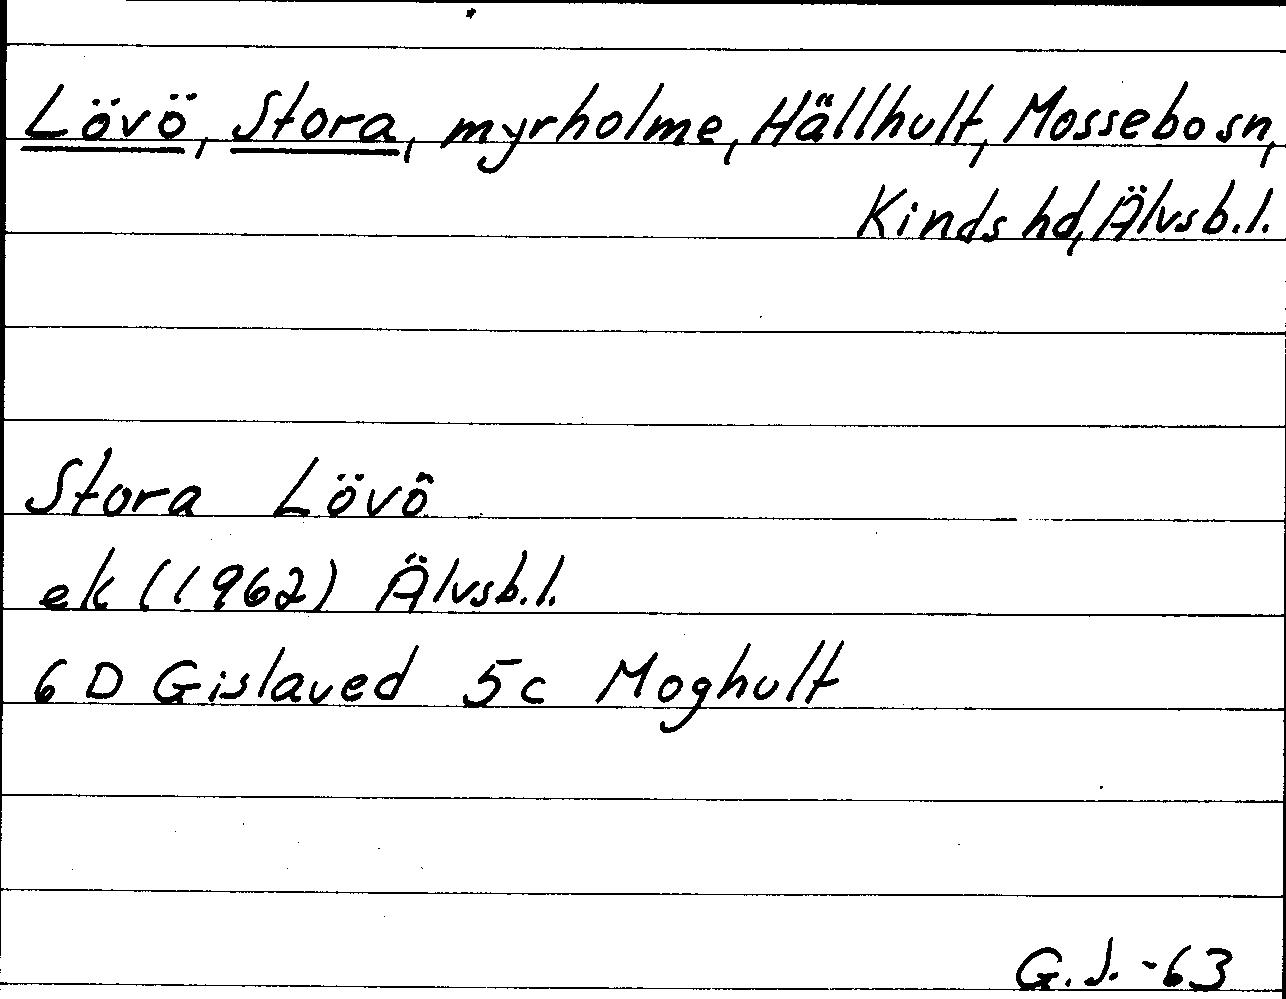 Lövö, Stora, myrholme, Hällhult, Mossebo sn,
Kinds hd, Älvsb.l.
Stora Lövö
ek (1962) Älvsb.l.
6 D Gislaved 5c Moghult
G.J. -63